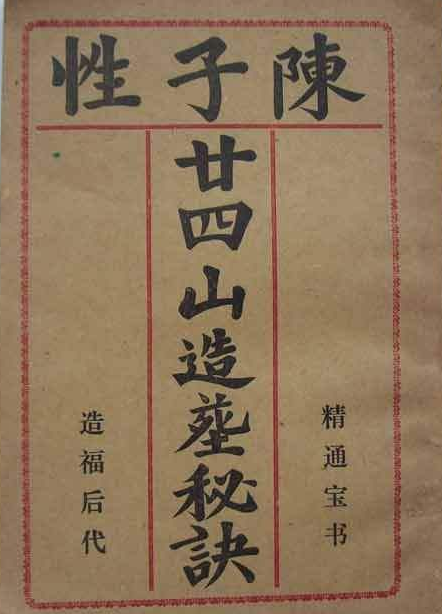 陳子性
精通宝书
廿四山造塟秘訣
造福后代